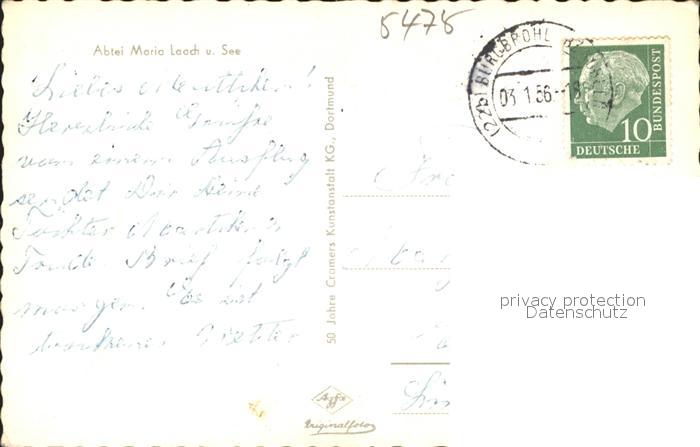 5475
Abtei Maria Laach u. See
Liebes Muttchen!
Herzliche Grüße
von einem Ausflug
sendet Dir Deine
Tochter
Brief folgt
morgen. Es ist
Wetter
50 Jahre Cramers Kunstanstalt KG., Dortmund
(22b) BURGBROHL
03.1.56.-18
10
DEUTSCHE
BUNDESPOST
privacy protection
Datenschutz
Agfa
Originalfoto